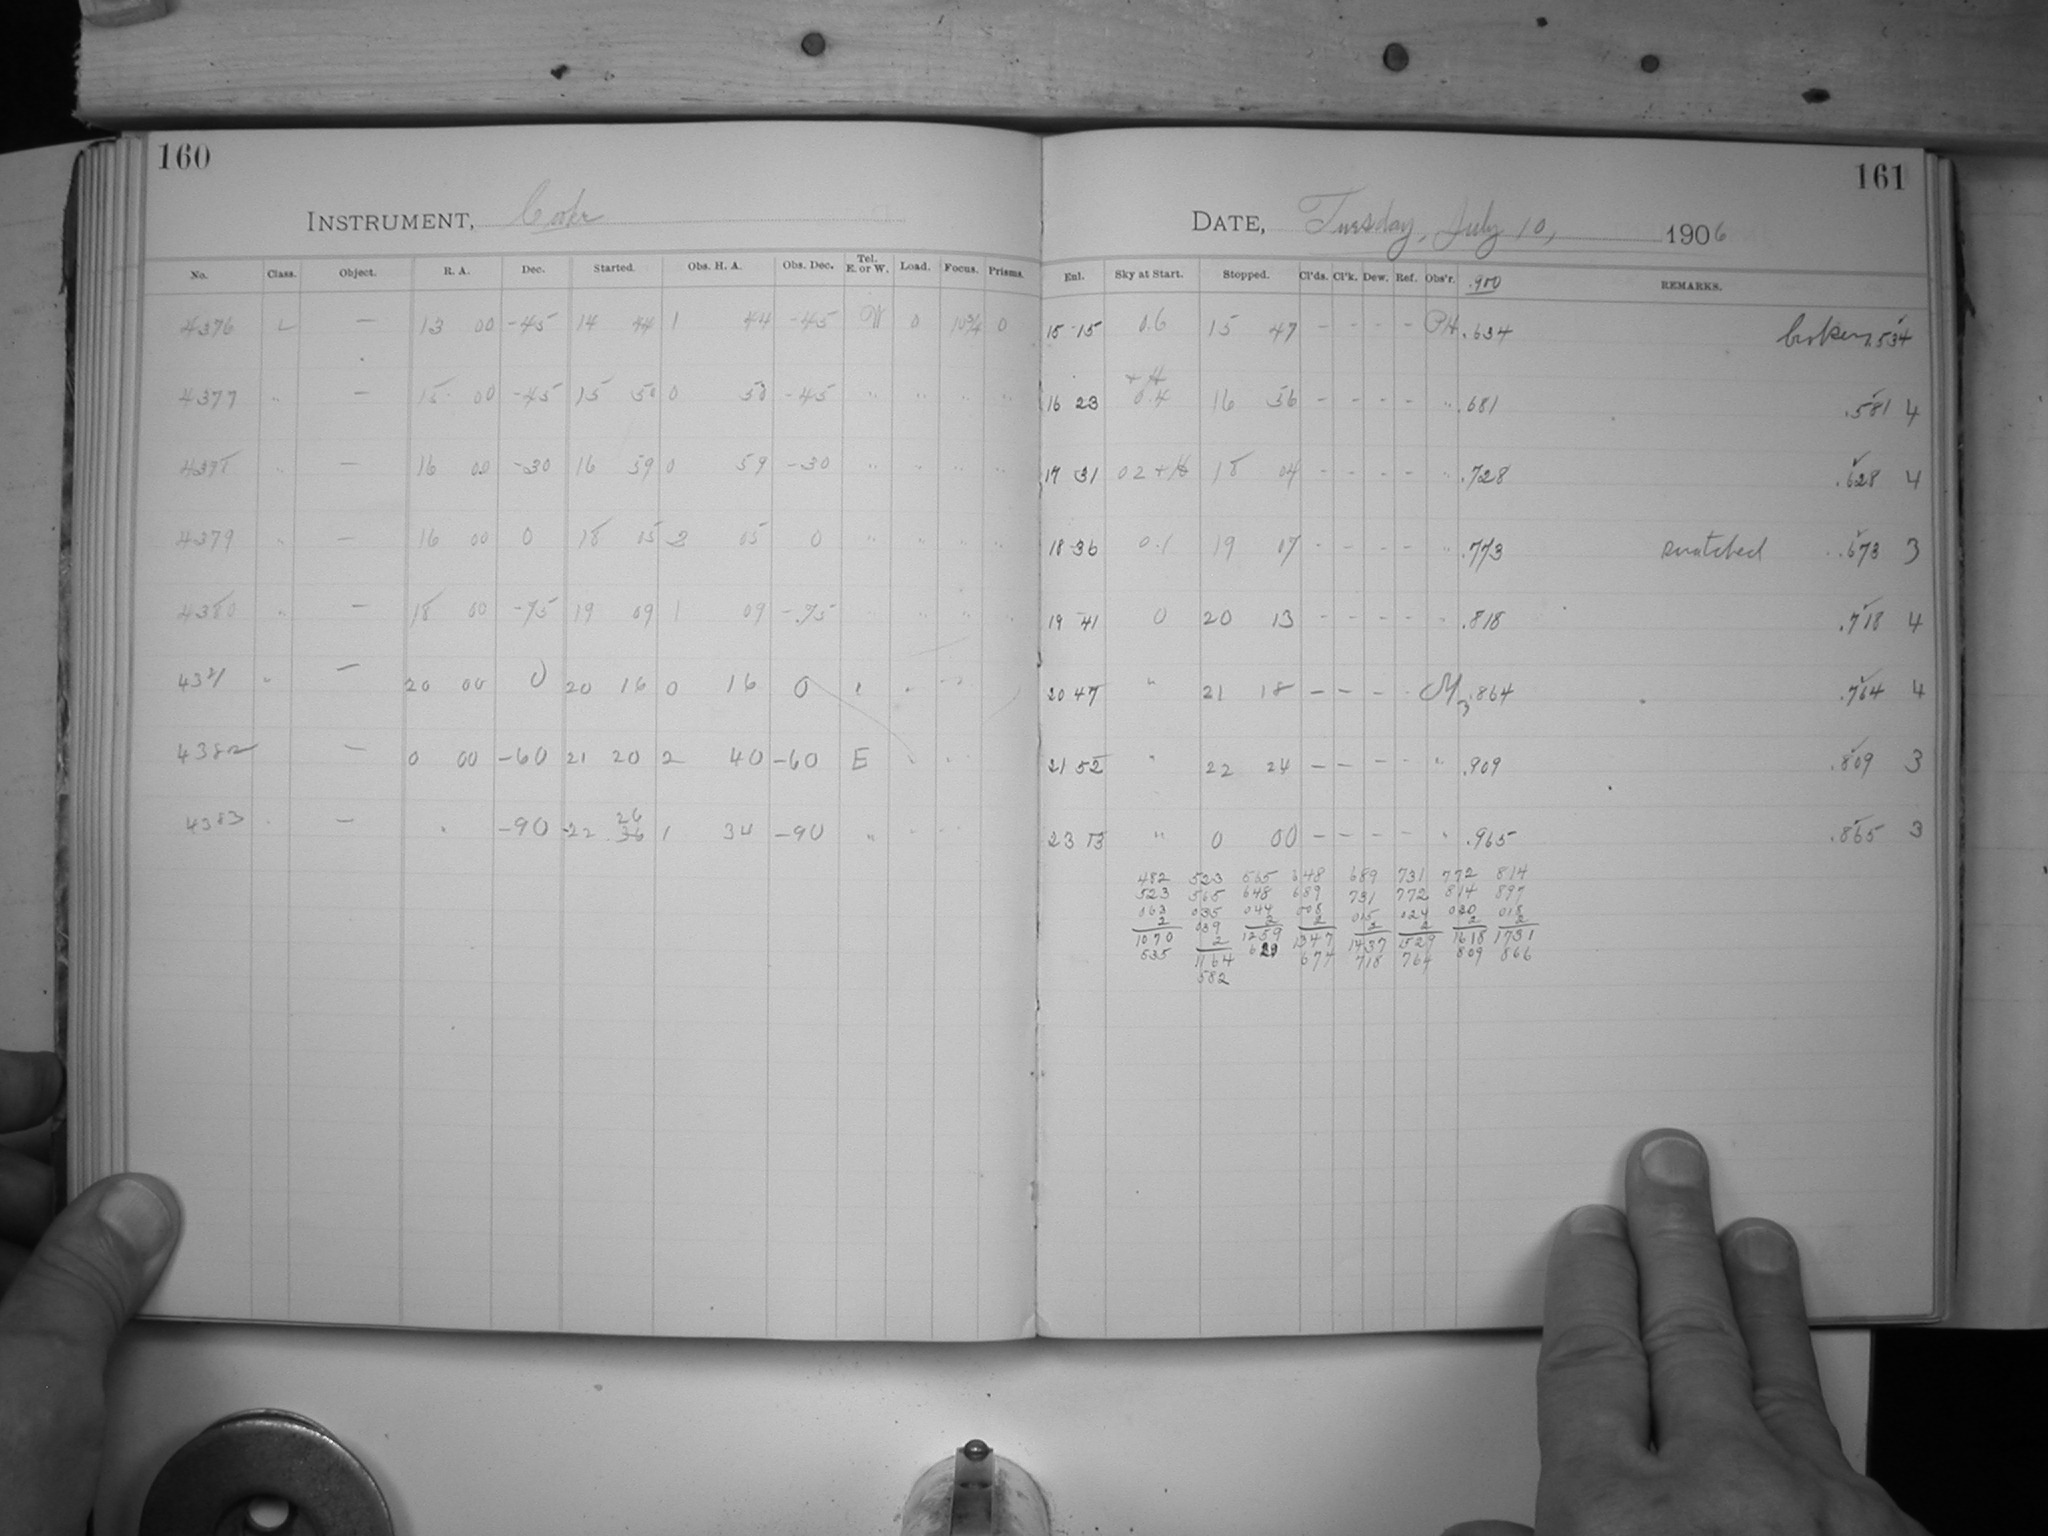 160
INSTRUMENT, Cooke
No. Class. Object. R. A. Dec. Started. Obs. H. A. Obs. Dec. Tel. E. or W. Load. Focus. Prisms.
4376 L — 13 00 -45 14 44 1 44 -45 W 0 10¾ 0
4377 " — 15 00 -45 15 50 0 50 -45 " " " "
4378 " — 16 00 -30 16 59 0 59 -30 " " " "
4379 " — 16 00 0 18 05 2 05 0 " " " "
4380 " — 18 00 -75 19 09 1 09 -75 " " " "
4381 " — 20 00 0 20 16 0 16 0 " " "
4382 — 0 00 -60 21 20 2 40 -60 E " "
4383 — -90 22 26 36 1 34 -90 "
161
DATE, Tuesday, July 10, 1906
Enl. Sky at Start. Stopped. Cl'ds. Cl'k. Dew. Ref. Obs'r. .900 REMARKS.
15 15 0.6 15 47 - - - - PH .634 broken .534
16 23 + H 0.4 16 56 - - - - " .681 .581 4
17 31 02 + H 18 04 - - - - " .728 .628 4
18 36 0.1 19 07 - - - - " .773 .673 3
19 41 0 20 13 - - - - " .818 .718 4
20 47 " 21 18 - - - - M3 .864 .764 4
21 52 " 22 24 - - - - " .909 .809 3
23 13 " 0 00 - - - - " .965 .865 3
482 523 565 648 689 731 772 814
523 565 648 689 731 772 814 897
063 035 044 008 015 024 030 018
2 039 2 2 2 2 2 2
1070 2 1259 1347 1437 1529 1618 1731
535 1164 629 674 718 764 809 866
582